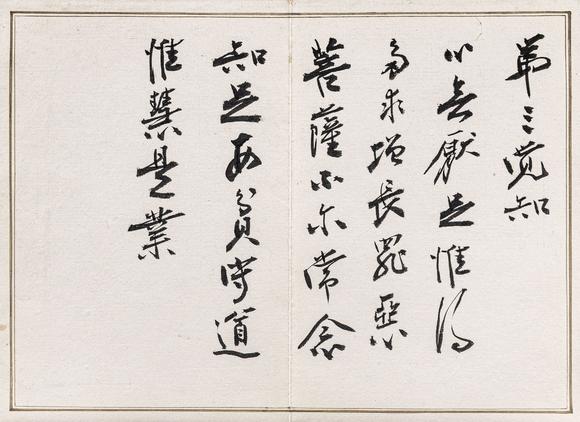 第三觉知
心无厭足惟得
多求增長罪惡
菩薩不尔常念
知足安貧守道
惟慧是業